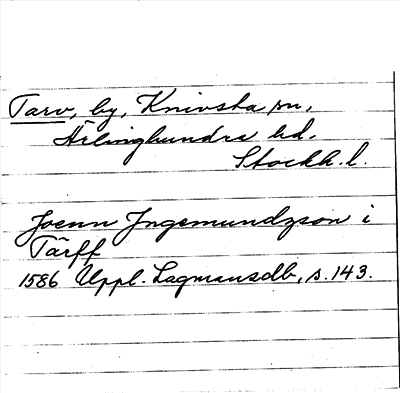 Tarv, by, Knivsta sn,
Ärlinghundra hd.
Stockh. l.
Joenn Jngemundzson i
Tärff
1586 Uppl. Lagmansdb, s. 143.